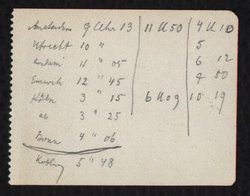 Amsterdam 9 Uhr 13 11 U 50 4 U 10
Utrecht 10 " 5
Arnhem 11 " 05 6 12
Emmerich 12 " 45 7 50
Köln 3 " 15 6 U 09 10 19
ab 3 " 25
Bonn 4 " 06
Koblenz 5 " 48